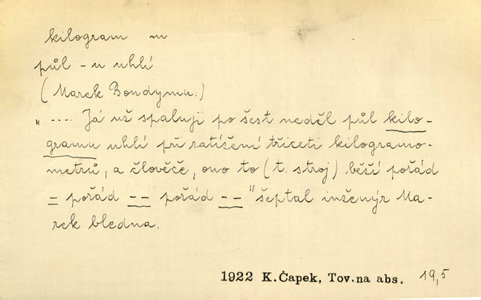 kilogram m
půl -u uhlí
(Marek Bondymu:)
„.... Já už spaluji po šest neděl půl kilo-
gramu uhlí při zatížení třiceti kilogramo-
metrů, a člověče, ono to (t. stroj) běží pořád
= pořád -- pořád -- “ šeptal inženýr Ma-
rek bledna.
1922 K.Čapek, Tov.na abs. 19,5